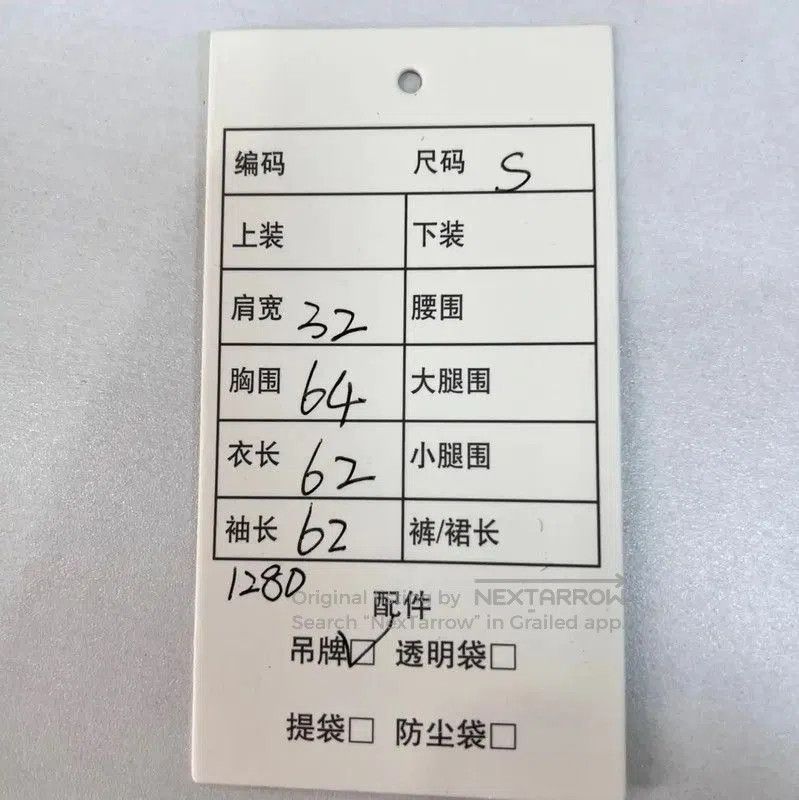 编码 尺码 S
上装 下装
肩宽 32 腰围
胸围 64 大腿围
衣长 62 小腿围
袖长 62 裤/裙长
1280
Original listing by NEXTARROW
配件
Search "NexTarrow" in Grailed app
吊牌 透明袋
提袋 防尘袋